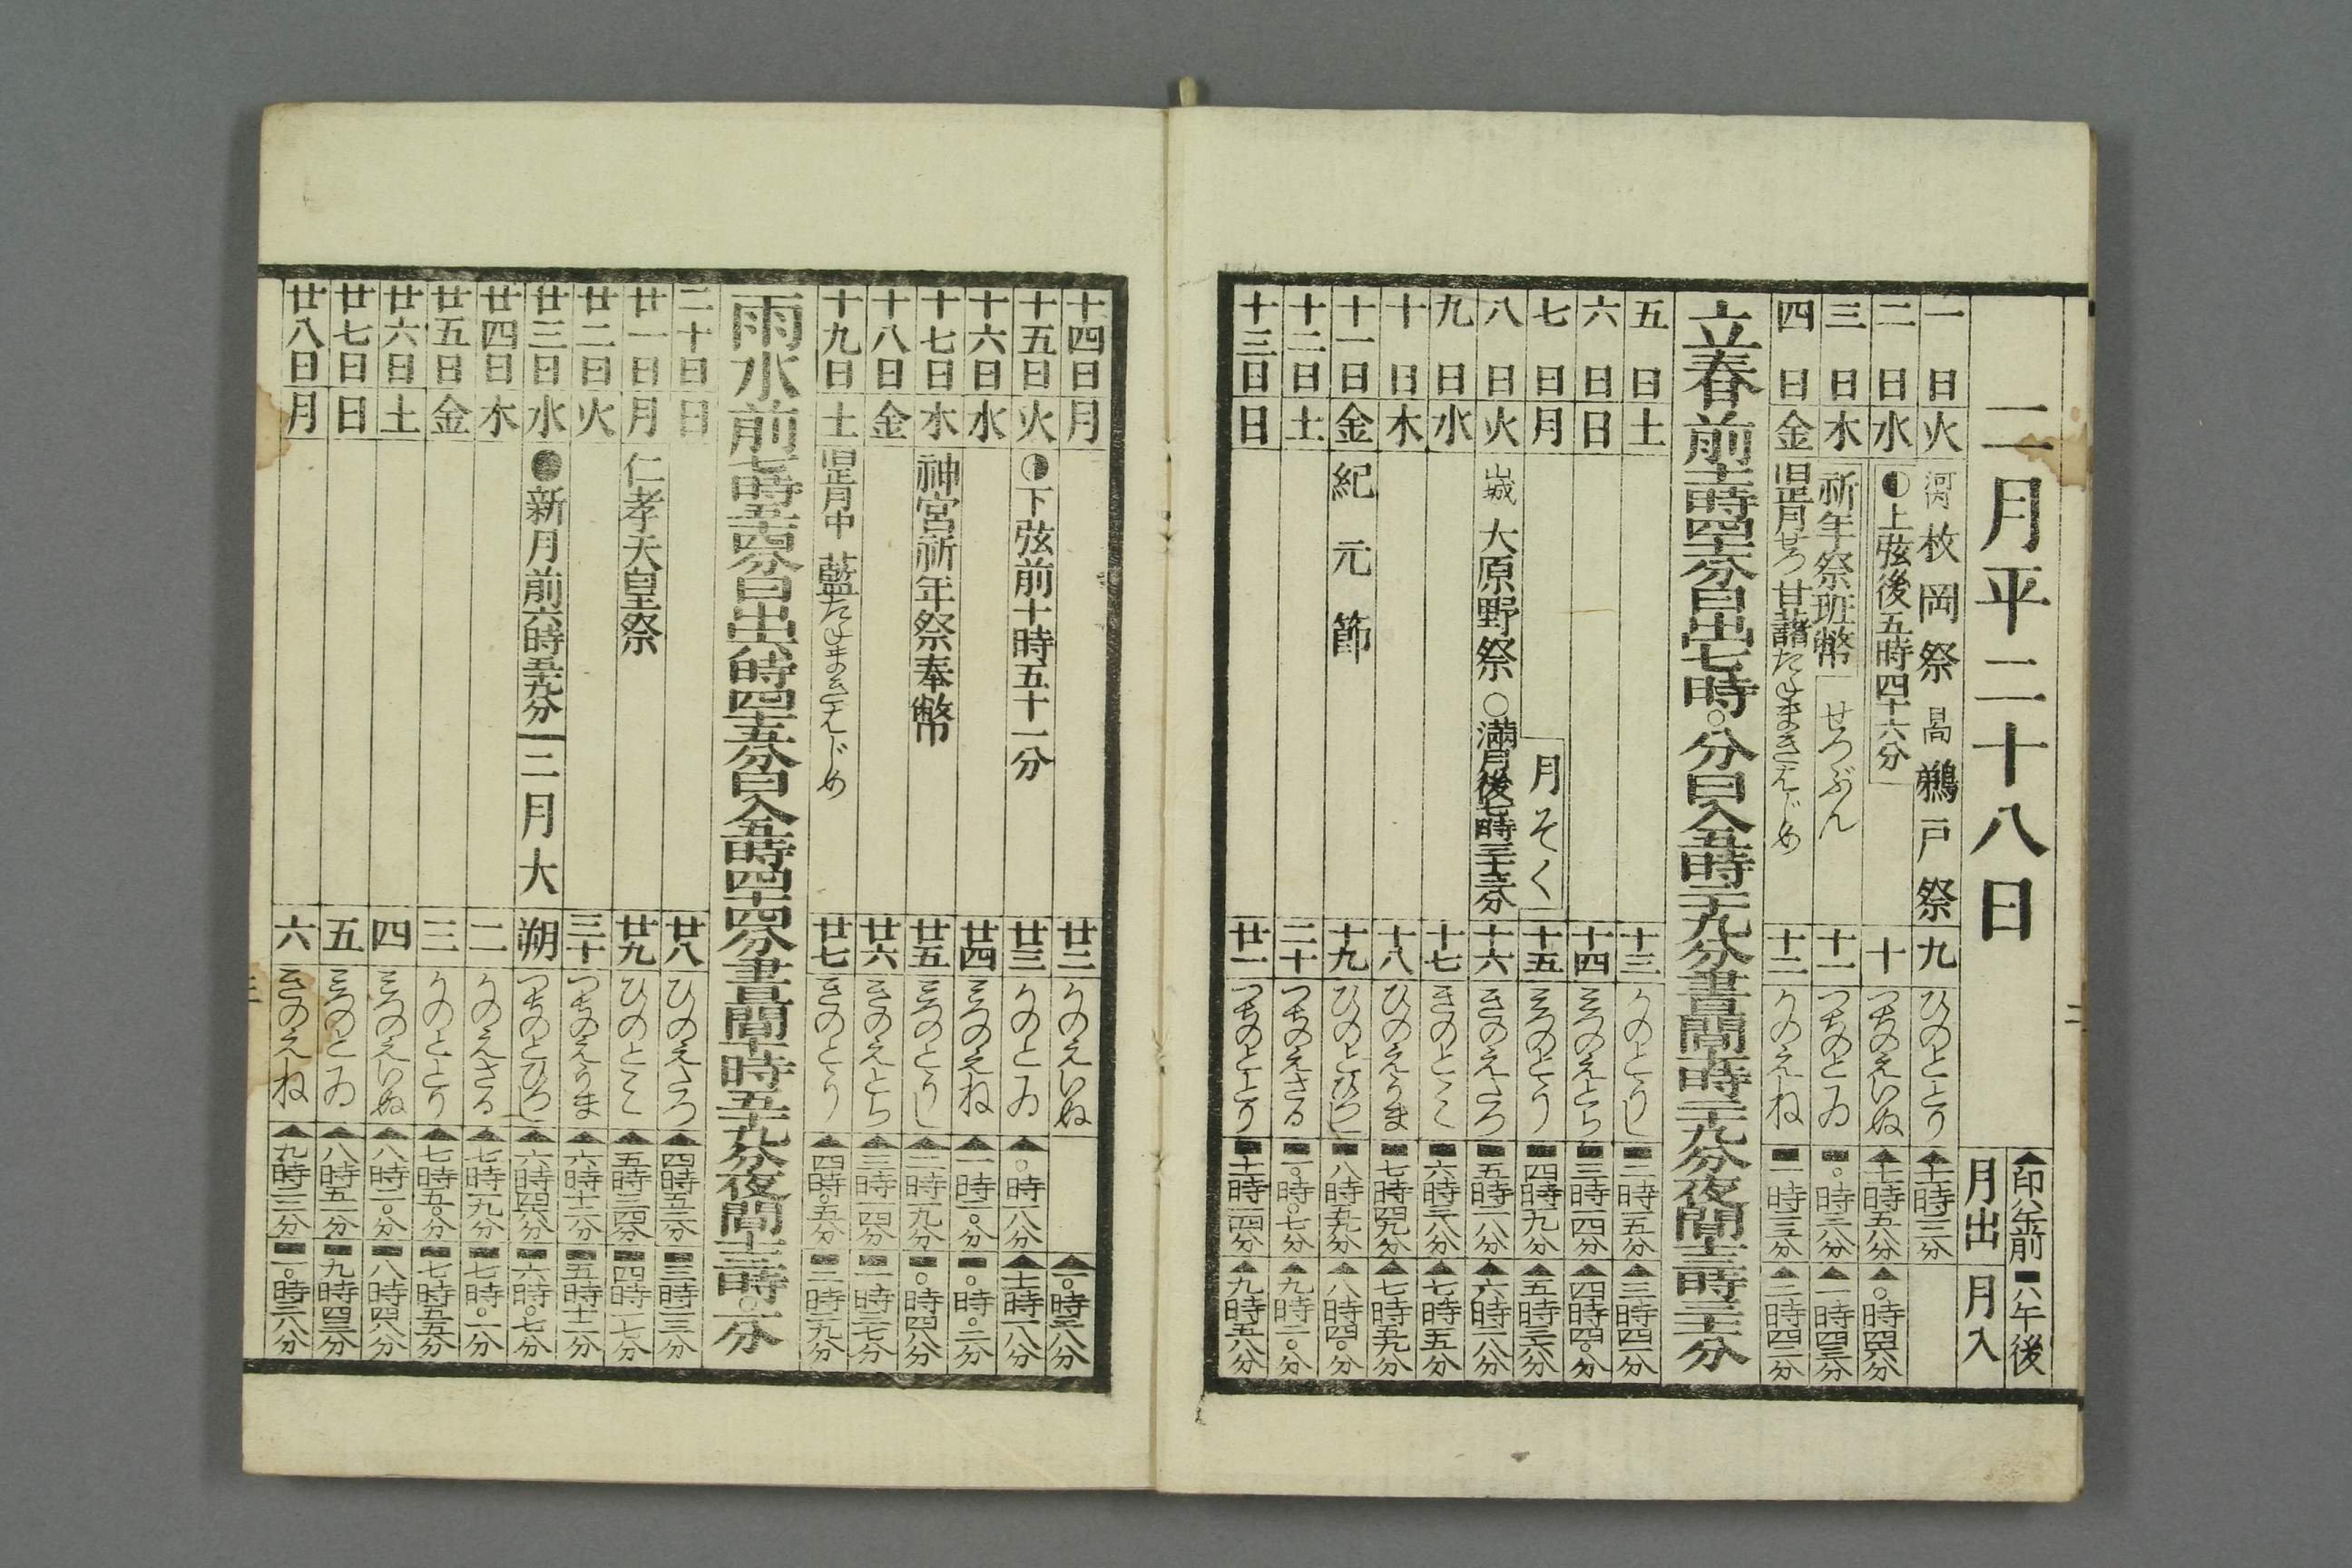 二月平二十八日
▲印ハ午前 ▬ハ午後
月出 月入
一日 火 河内枚岡祭 日向鵜戸祭 九 ひのととり ▲十一時二三分
二日 水 ◐上弦後五時四十六分 十 つちのえいぬ ▲十一時五八分 ▲〇時四六分
三日 木 祈年祭班幣 せつぶん 十一 つちのとゐ ▬〇時三八分 ▲一時四三分
四日 金 旧正月せつ 甘藷たねまきはじめ 十二 かのえね ▬一時二三分 ▲二時四二分
立春 前十一時四十六分日出七時〇分日入五時二十九分晝間十時二十九分夜間十三時三十一分
五日 土 十三 かのとうし ▬二時一五分 ▲三時四一分
六日 日 十四 みつのえとら ▬三時一四分 ▲四時四〇分
七日 月 月そく 十五 みつのとう ▬四時一九分 ▲五時三六分
八日 火 山城大原野祭 ○満月後七時三十三分 十六 きのえたつ ▬五時二八分 ▲六時二八分
九日 水 十七 きのとみ ▬六時三八分 ▲七時一五分
十日 木 十八 ひのえうま ▬七時四九分 ▲七時五九分
十一日 金 紀元節 十九 ひのとひつし ▬八時五九分 ▲八時四〇分
十二日 土 二十 つちのえさる ▬一〇時〇七分 ▲九時二〇分
十三日 日 廿一 つちのととり ▬十一時一四分 ▲九時五八分
十四日 月 廿二 かのえいぬ ▲一〇時三八分
十五日 火 ◑下弦前十時五十一分 廿三 かのとゐ ▲〇時一八分 ▲十一時一八分
十六日 水 廿四 みつのえね ▲一時二〇分 ▬〇時〇二分
十七日 木 神宮祈年祭奉幣 廿五 みつのとうし ▲二時一九分 ▬〇時四八分
十八日 金 廿六 きのえとら ▲三時一四分 ▬一時三七分
十九日 土 旧正月中 藍たねまきはじめ 廿七 きのとう ▲四時〇五分 ▬二時二九分
雨水 前七時五十四分日出六時四十五分日入五時四十四分晝間十時五十九分夜間十三時〇一分
二十日 日 廿八 ひのえたつ ▲四時五二分 ▬三時二三分
廿一日 月 仁孝天皇祭 廿九 ひのとみ ▲五時三四分 ▬四時一七分
廿二日 火 三十 つちのえうま ▲六時一二分 ▬五時一二分
廿三日 水 ●新月前六時五十九分 二月大 朔 つちのとひつし ▲六時四六分 ▬六時〇七分
廿四日 木 二 かのえさる ▲七時一九分 ▬七時〇一分
廿五日 金 三 かのととり ▲七時五〇分 ▬七時五五分
廿六日 土 四 みつのえいぬ ▲八時二〇分 ▬八時四八分
廿七日 日 五 みつのとゐ ▲八時五一分 ▬九時四三分
廿八日 月 六 きのえね ▲九時二三分 ▬一〇時三八分